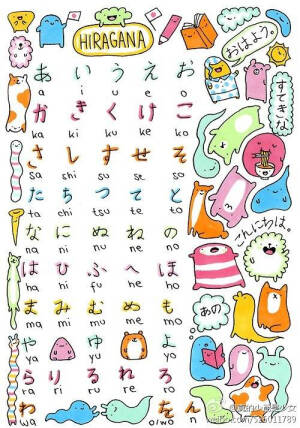 HIRAGANA
おはよう。
すてきな
あ い う え お
a i u e o
か き く け こ
ka ki ku ke ko
さ し す せ そ
sa shi su se so
た ち つ て と
ta chi tsu te to
な に ぬ ね の
na ni nu ne no
こんにちは。
は ひ ふ へ ほ
ha hi fu he ho
あの
ま み む め も
ma mi mu me mo
や ゆ よ
ya yu yo
ら り る れ ろ
ra ri ru re ro
わ を ん
wa o/wo n